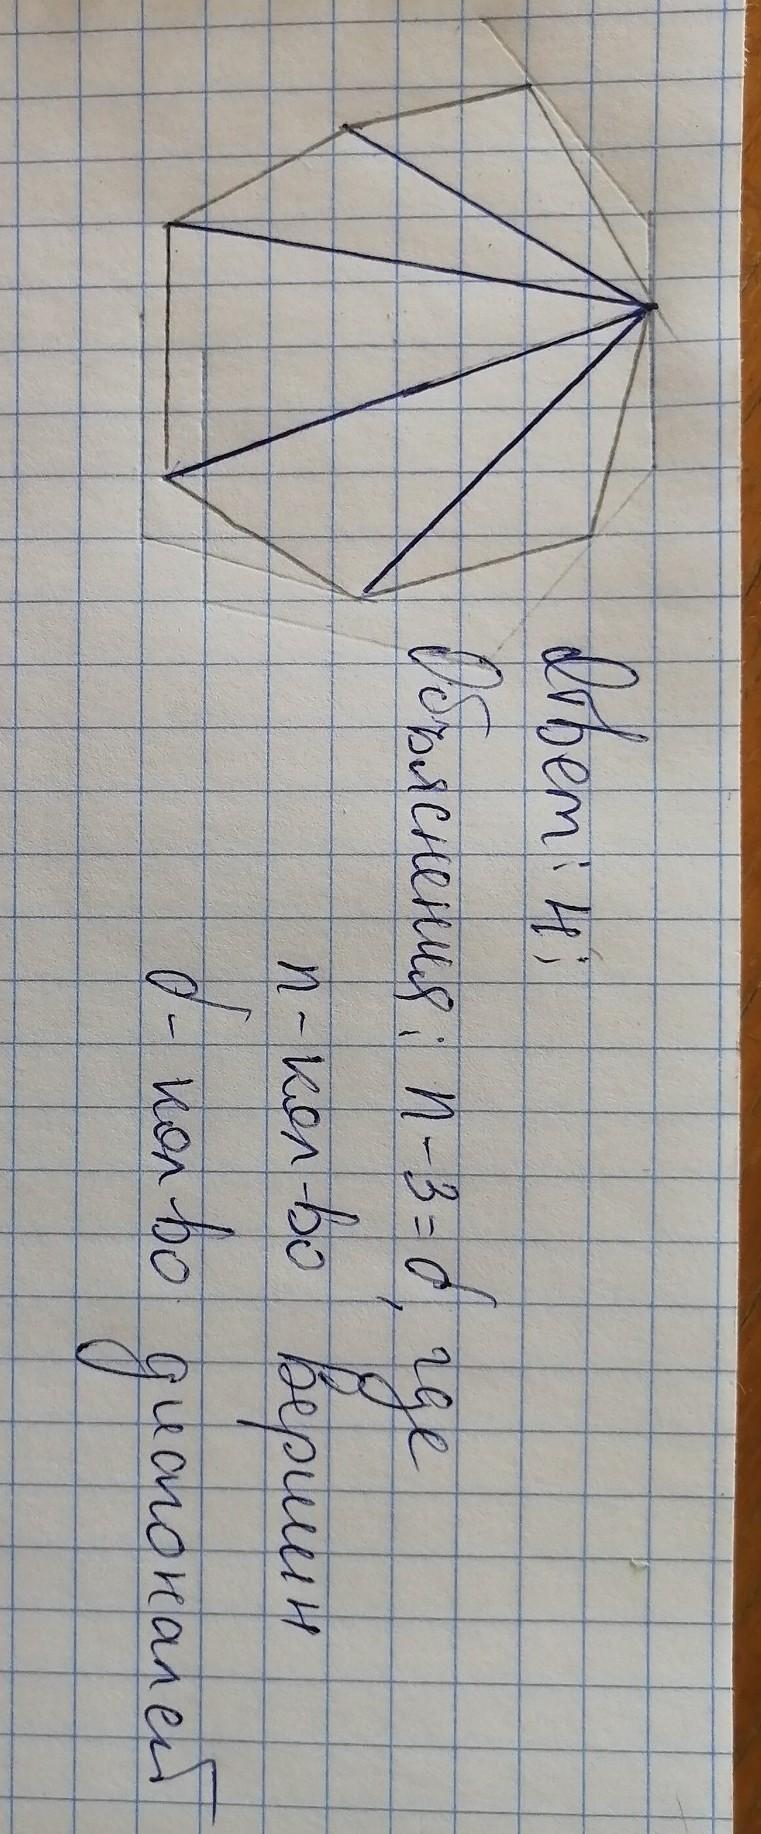 Ответ: 4;
Объяснения: n-3=d, где
n-кол-во вершин
d-кол-во диагоналей